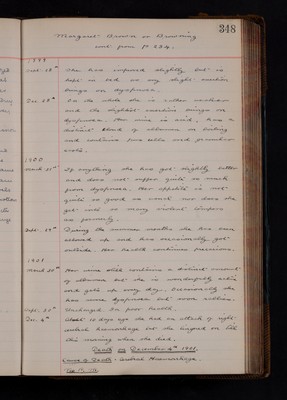 348
Margaret Brown or Browning
cont. from p. 234.
1899
Oct. 18th She has improved slightly but is
kept in bed as any slight exertion
brings on dyspnoea.
Dec. 28th On the whole she is rather weaker
and the slightest exertion brings on
dyspnoea. Her urine is acid, has a
distinct cloud of albumen on boiling
and contains pus cells and granular
casts.
1900
March 21st If anything she has got slightly better
and does not suffer quite so much
from dyspnoea. Her appetite is not
quite so good as nor does she
get into so many violent tempers
as formerly.
Sept. 19th During the summer months she has been
allowed up and has occasionally got
outside. Her health continues precarious.
1901
March 20th Her urine still contains a distinct amount
of albumen but she is wonderfully active
and gets up every day. Occasionally she
has some dyspnoea but soon rallies.
Sept. 20th Unchanged. In poor health.
Dec. 6th About 10 days ago she had an attack of right
cerebral haemorrhage but she lingered on till
this morning when she died.
Death on December 6th 1901.
Cause of Death - Cerebral Haemorrhage